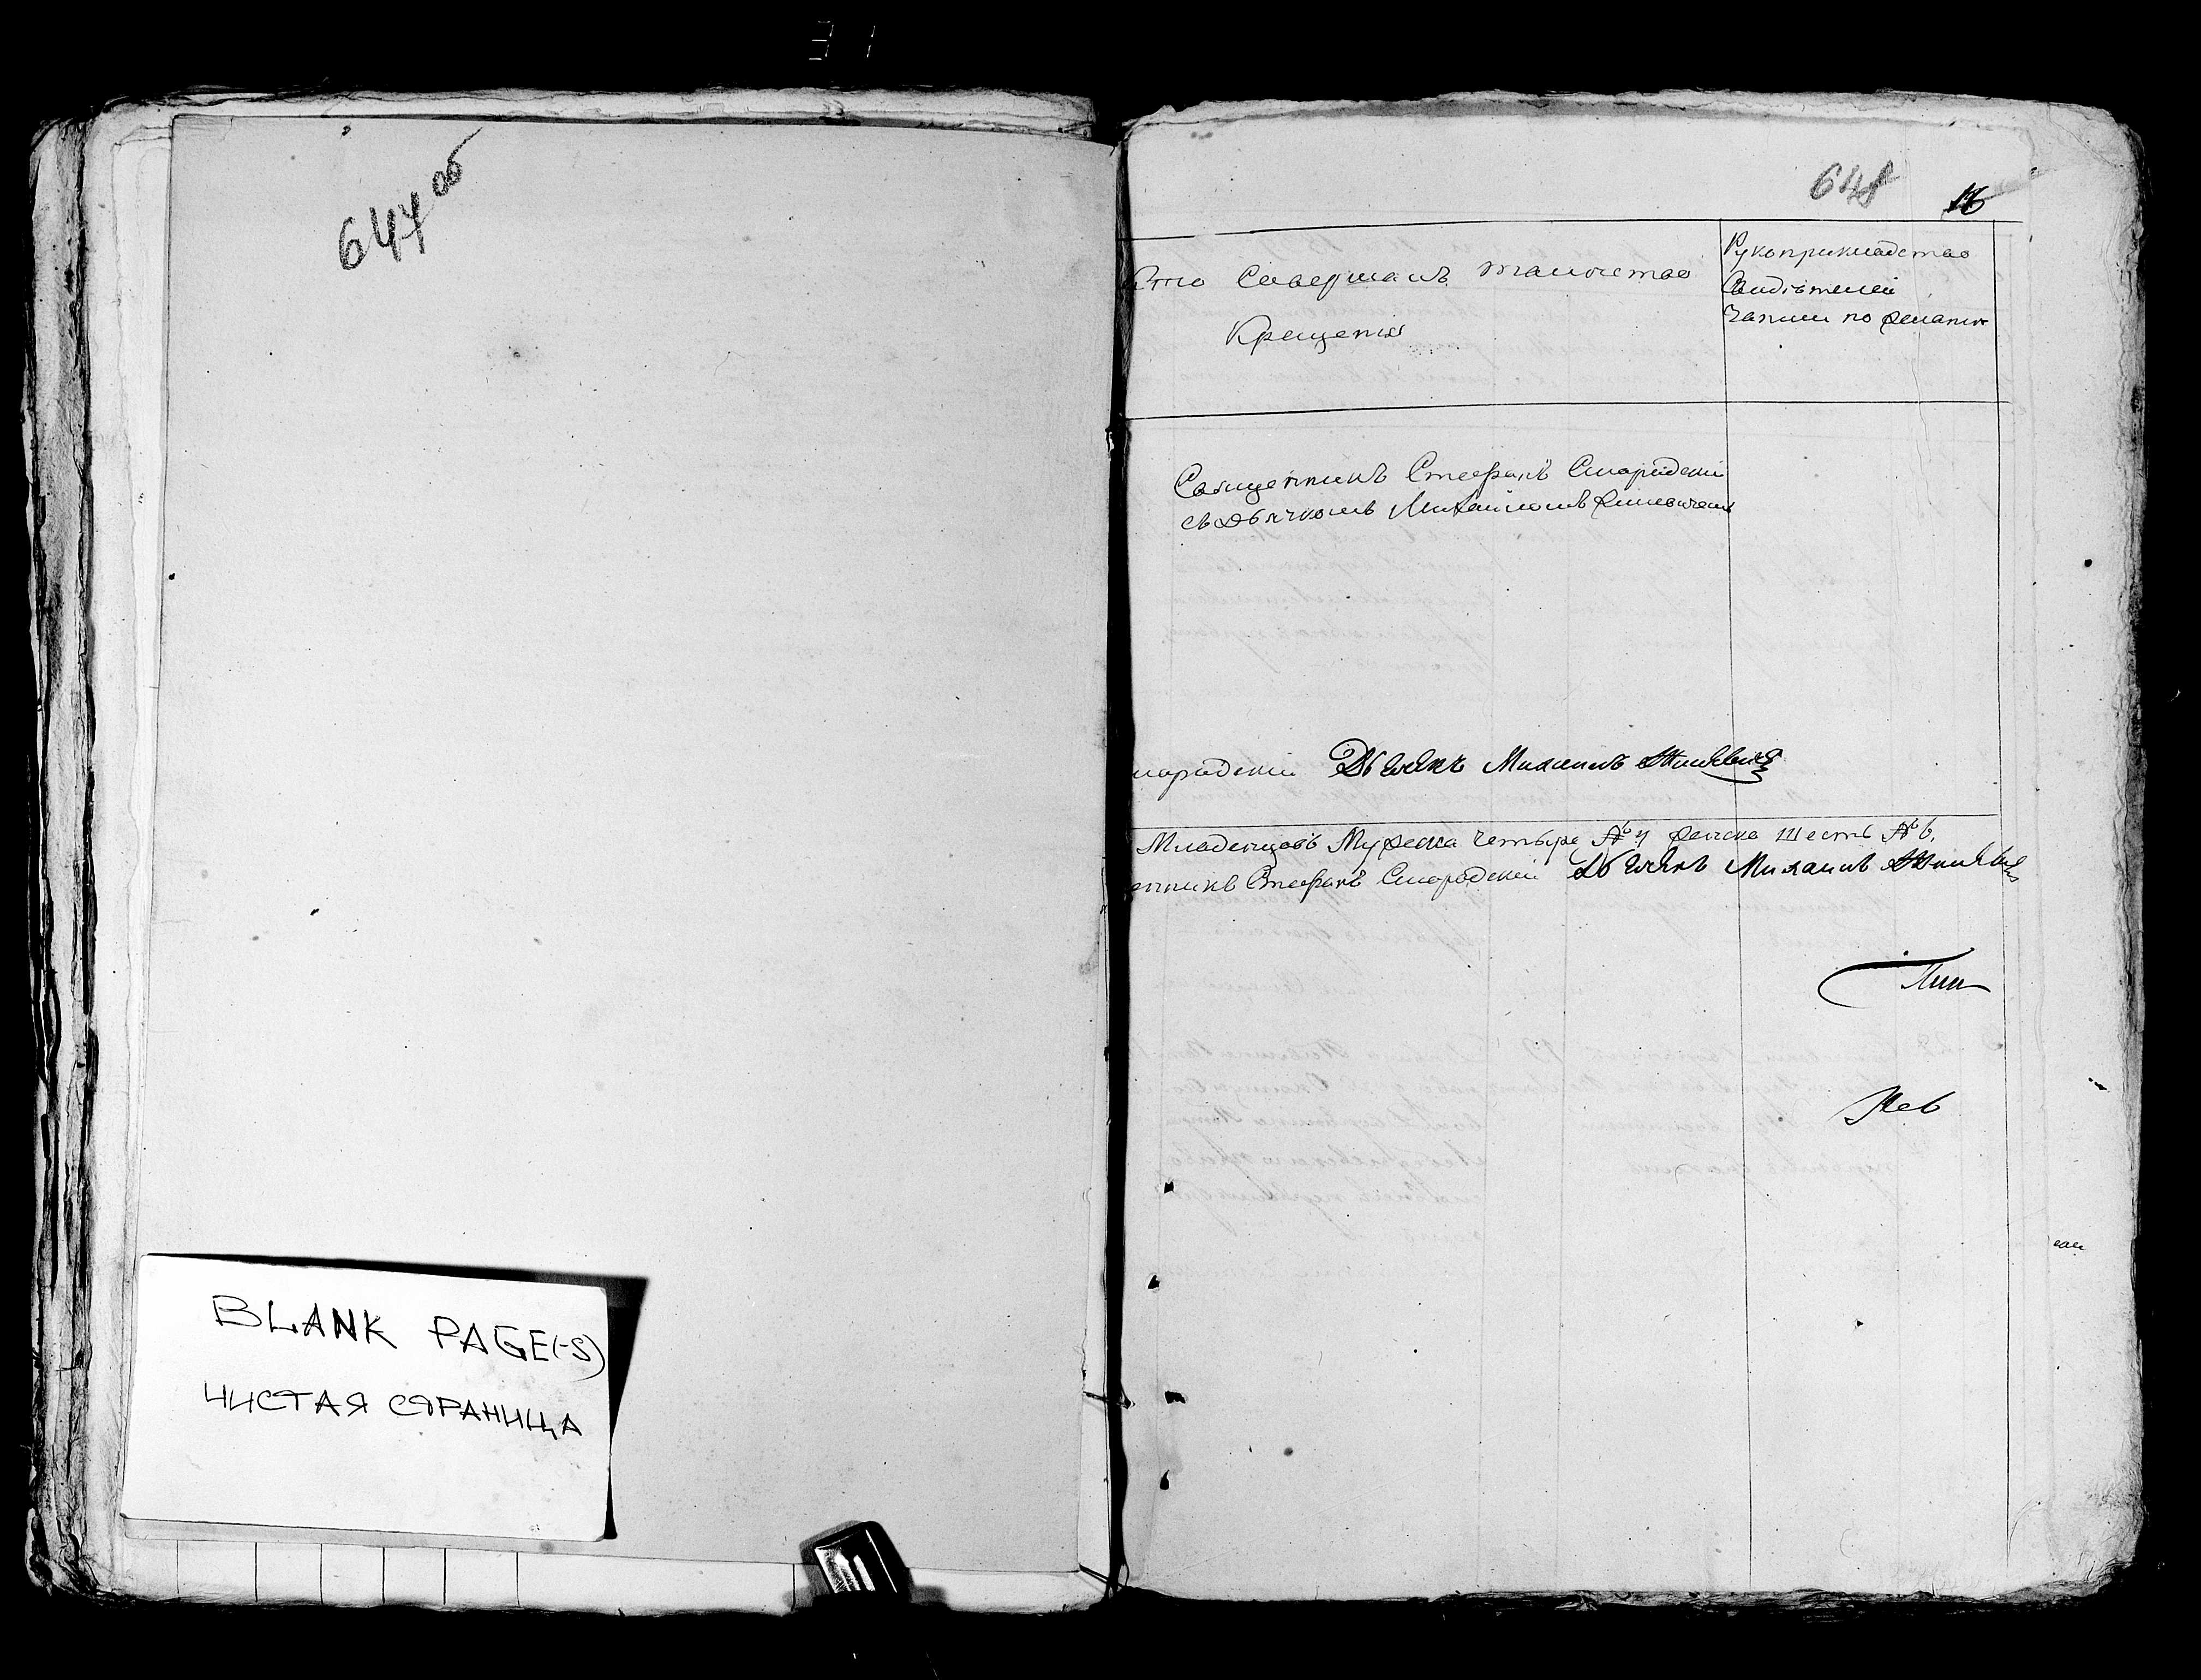 31
644 об
BLANK PAGE(-S)
ЧИСТАЯ СТРАНИЦА
648 16
Кто Совершалъ таинство
Крещенія
Рукоприкладство
Свидѣтелей
записи по желанію
Священникъ Стефанъ Смародскій
съ Дьячкомъ Михаиломъ
мародскій Дьячекъ Михаилъ
Младенцовъ Мужеска четыре № 4 женска шесть № 6.
енникъ Стефанъ Смародскій Дьячекъ Михаилъ